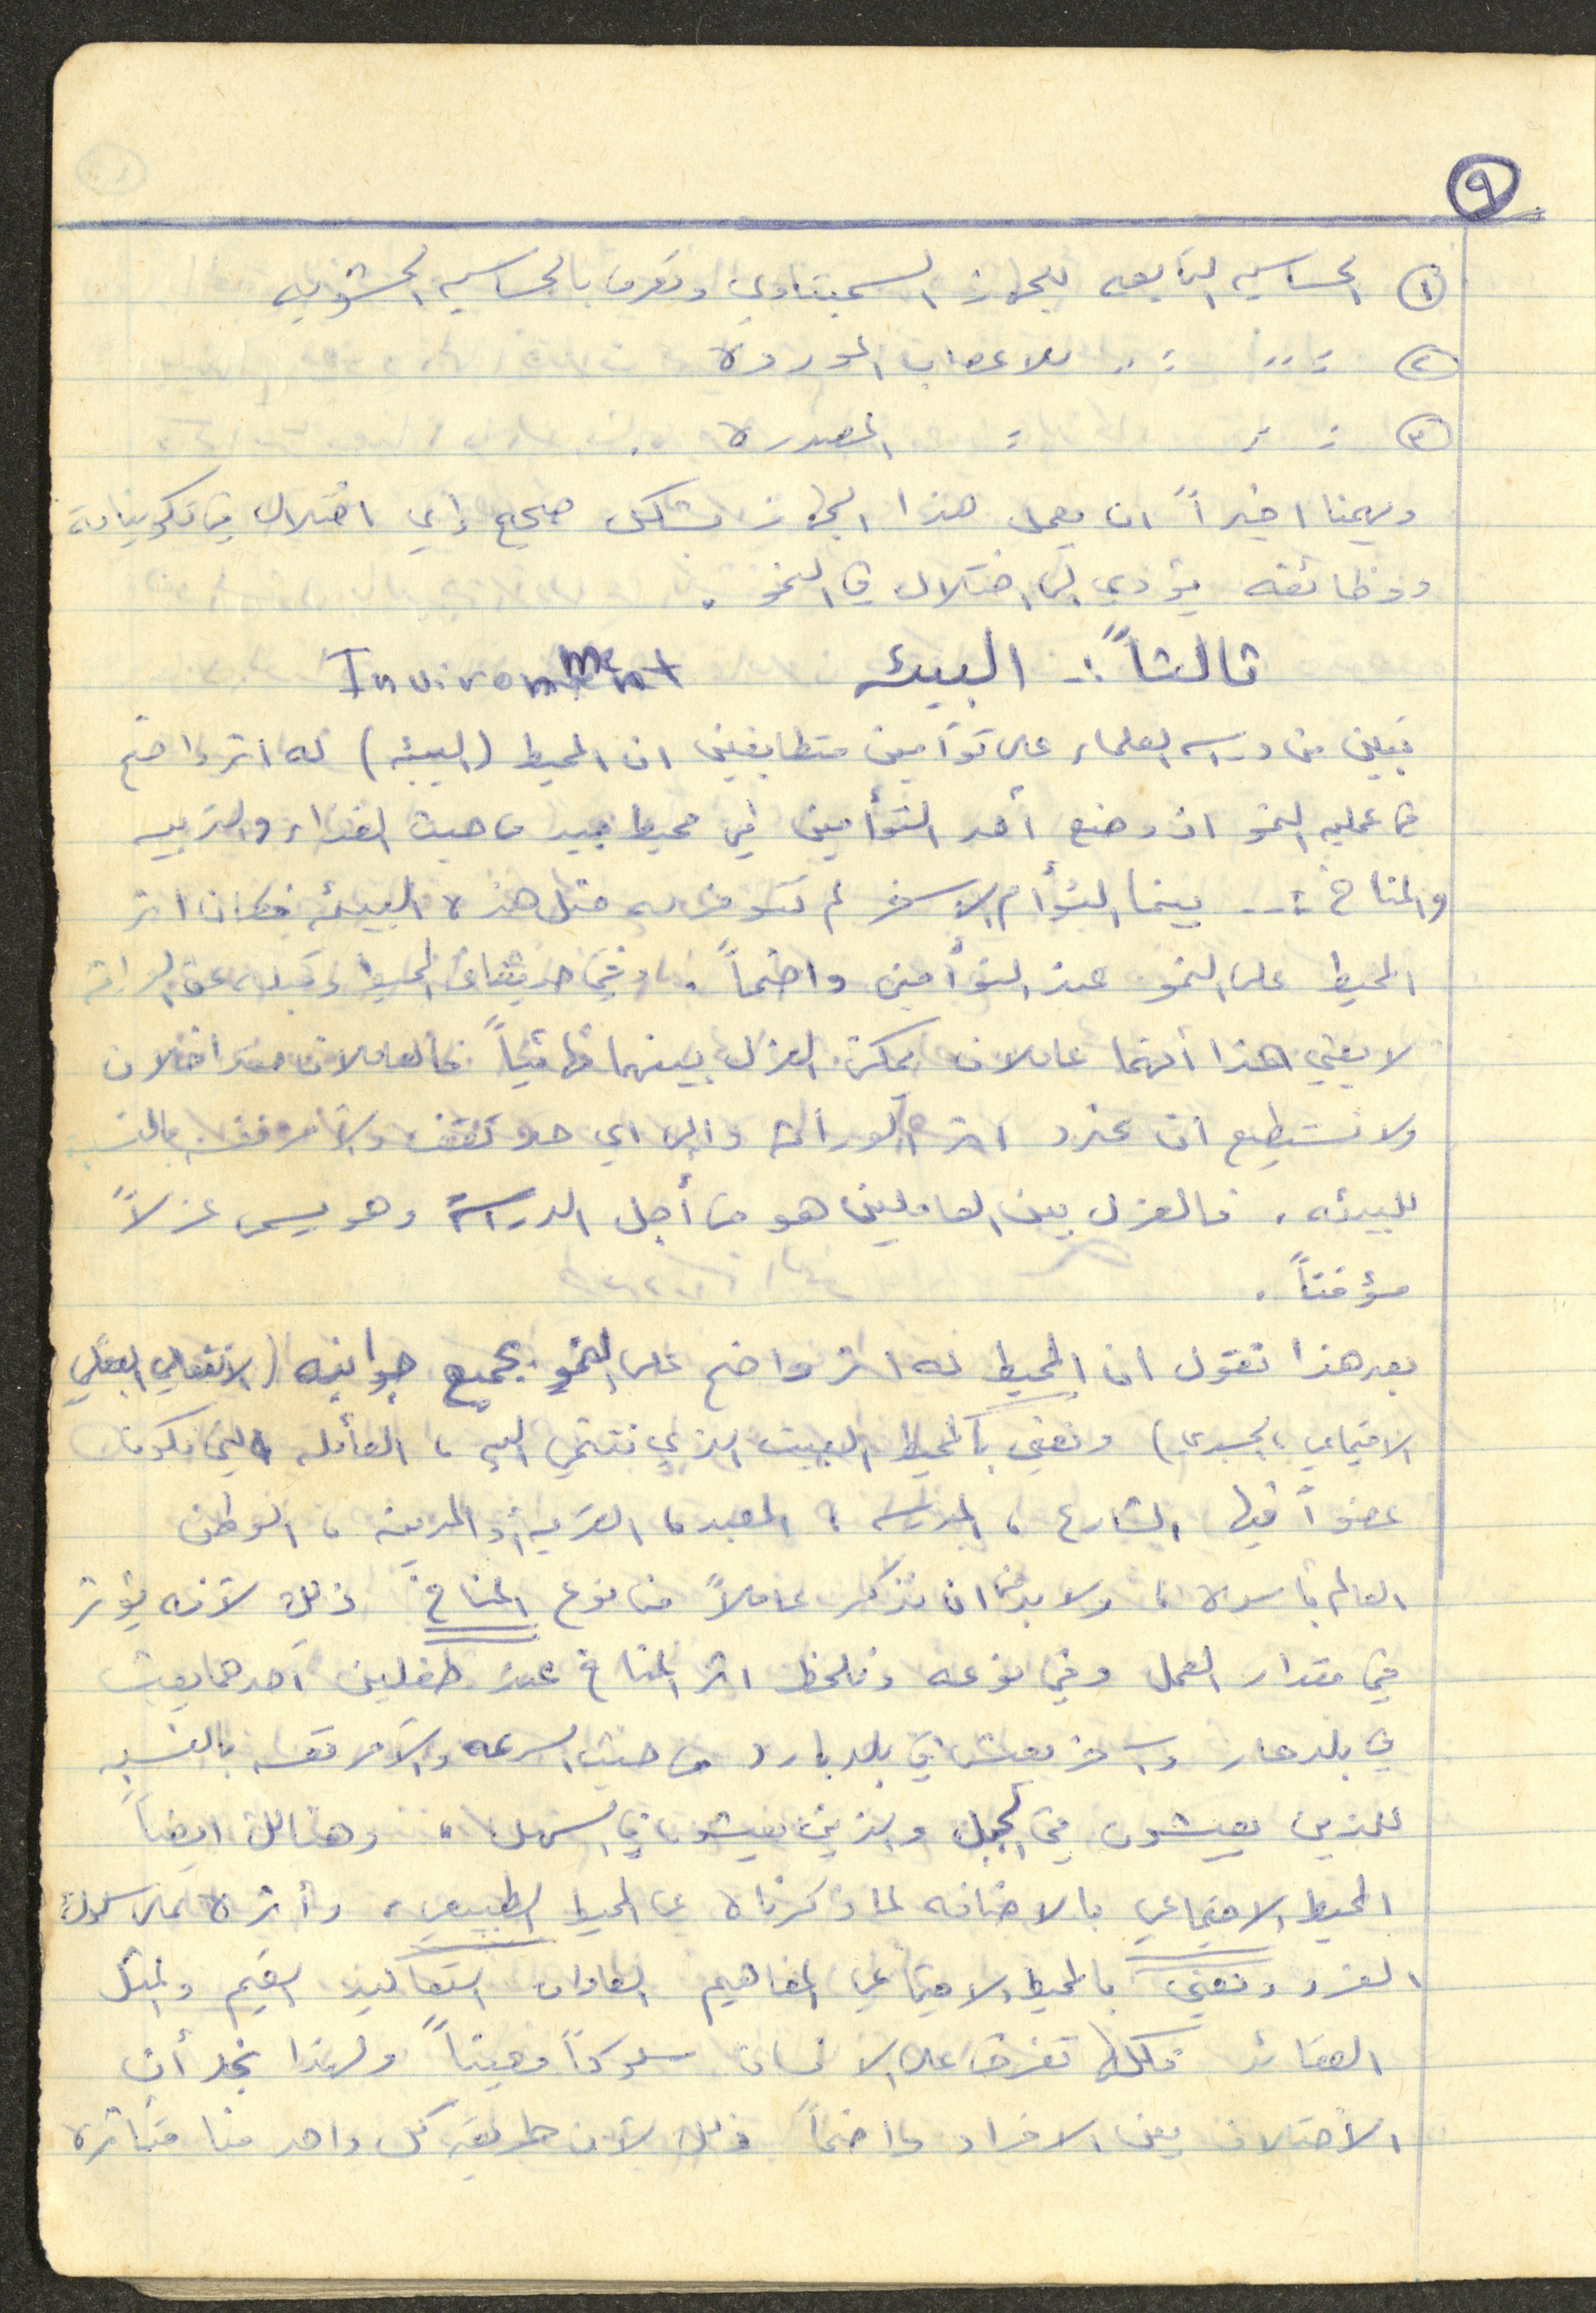 ٩
١ الحساسيه التابعه للجهاز السمبتاوي وتعرف بالحساسيه الحشويه
٢ " " " للاعصاب الموردة
٣ " " " المصدره .
ويهمنا اخيراً ان يعمل هذا الجهاز بشكل صحيح وأي اختلال في تكويناته
ووظائفه يؤدي الى اختلال في النمو .
ثالثاً :- البيئه Invironment
تبين من دراسه العلماء على توأمين متطابقين ان المحيط (البيئه) له اثر واضح
في عمليه النمو اذ وضع أحد التوأمين في محيط جيد من حيث الغذاء والتربيه
والمناخ ... بينما التوأم الآخر لم تتوفر له مثل هذه البيئه فكان اثر
المحيط على النمو عند التوأمين واضحاً . وفي حديثنا عن المحيط وقبله عن الوراثه
لا يعني هذا أنهما عاملان يمكن العزل بينهما نهائياً فالعاملان متداخلان
ولا نستطيع أن نحدد اثر الوراثه والى اي حد تقف والآمر نفسه بالنسبه
للبيئه . فالعزل بين العاملين هو من أجل الدراسة وهو يسمى عزلاً
مؤقتاً .
بعد هذا نقول ان المحيط له اثر واضح على النمو بجميع جوانبه (الانفعالي العقلي
الاجتماعي ، الجسدي) ونعني بالمحيط البيت الذي ننتمي اليه ، العائله التي نكون
عضواً فيها الشارع ، المدرسه ، المعبد ، القريه أو المدينه ، الوطن
العالم بأسره ، ولا بد من ان نذكر عاملاً من نوع المناخ ذلك لآنه يؤثر
في مقدار العمل وفي نوعه ونلحظ اثر المناخ عند طفلين احدهما يعيش
في بلد حار والآخر يعيش في بلد بارد من حيث السرعه والآمر نفسه بالنسبه
للذين يعيشون في الجبل والذين يعيشون في السهل ، وهنالك ايضاً
المحيط الاجتماعي بالاضافه لما ذكرناه عن المحيط الطبيعي ، وأثره على سلوك
الفرد ونعني بالمحيط الاجتماعي المفاهيم العادات التقاليد القيم والمثل
العقائد فكلها تفرض على الانسان سلوكاً معيناً ولهذا نجد أن
الاختلاف بين الافراد واضحاً ذلك لآن طريقه كل واحد منا متأثره